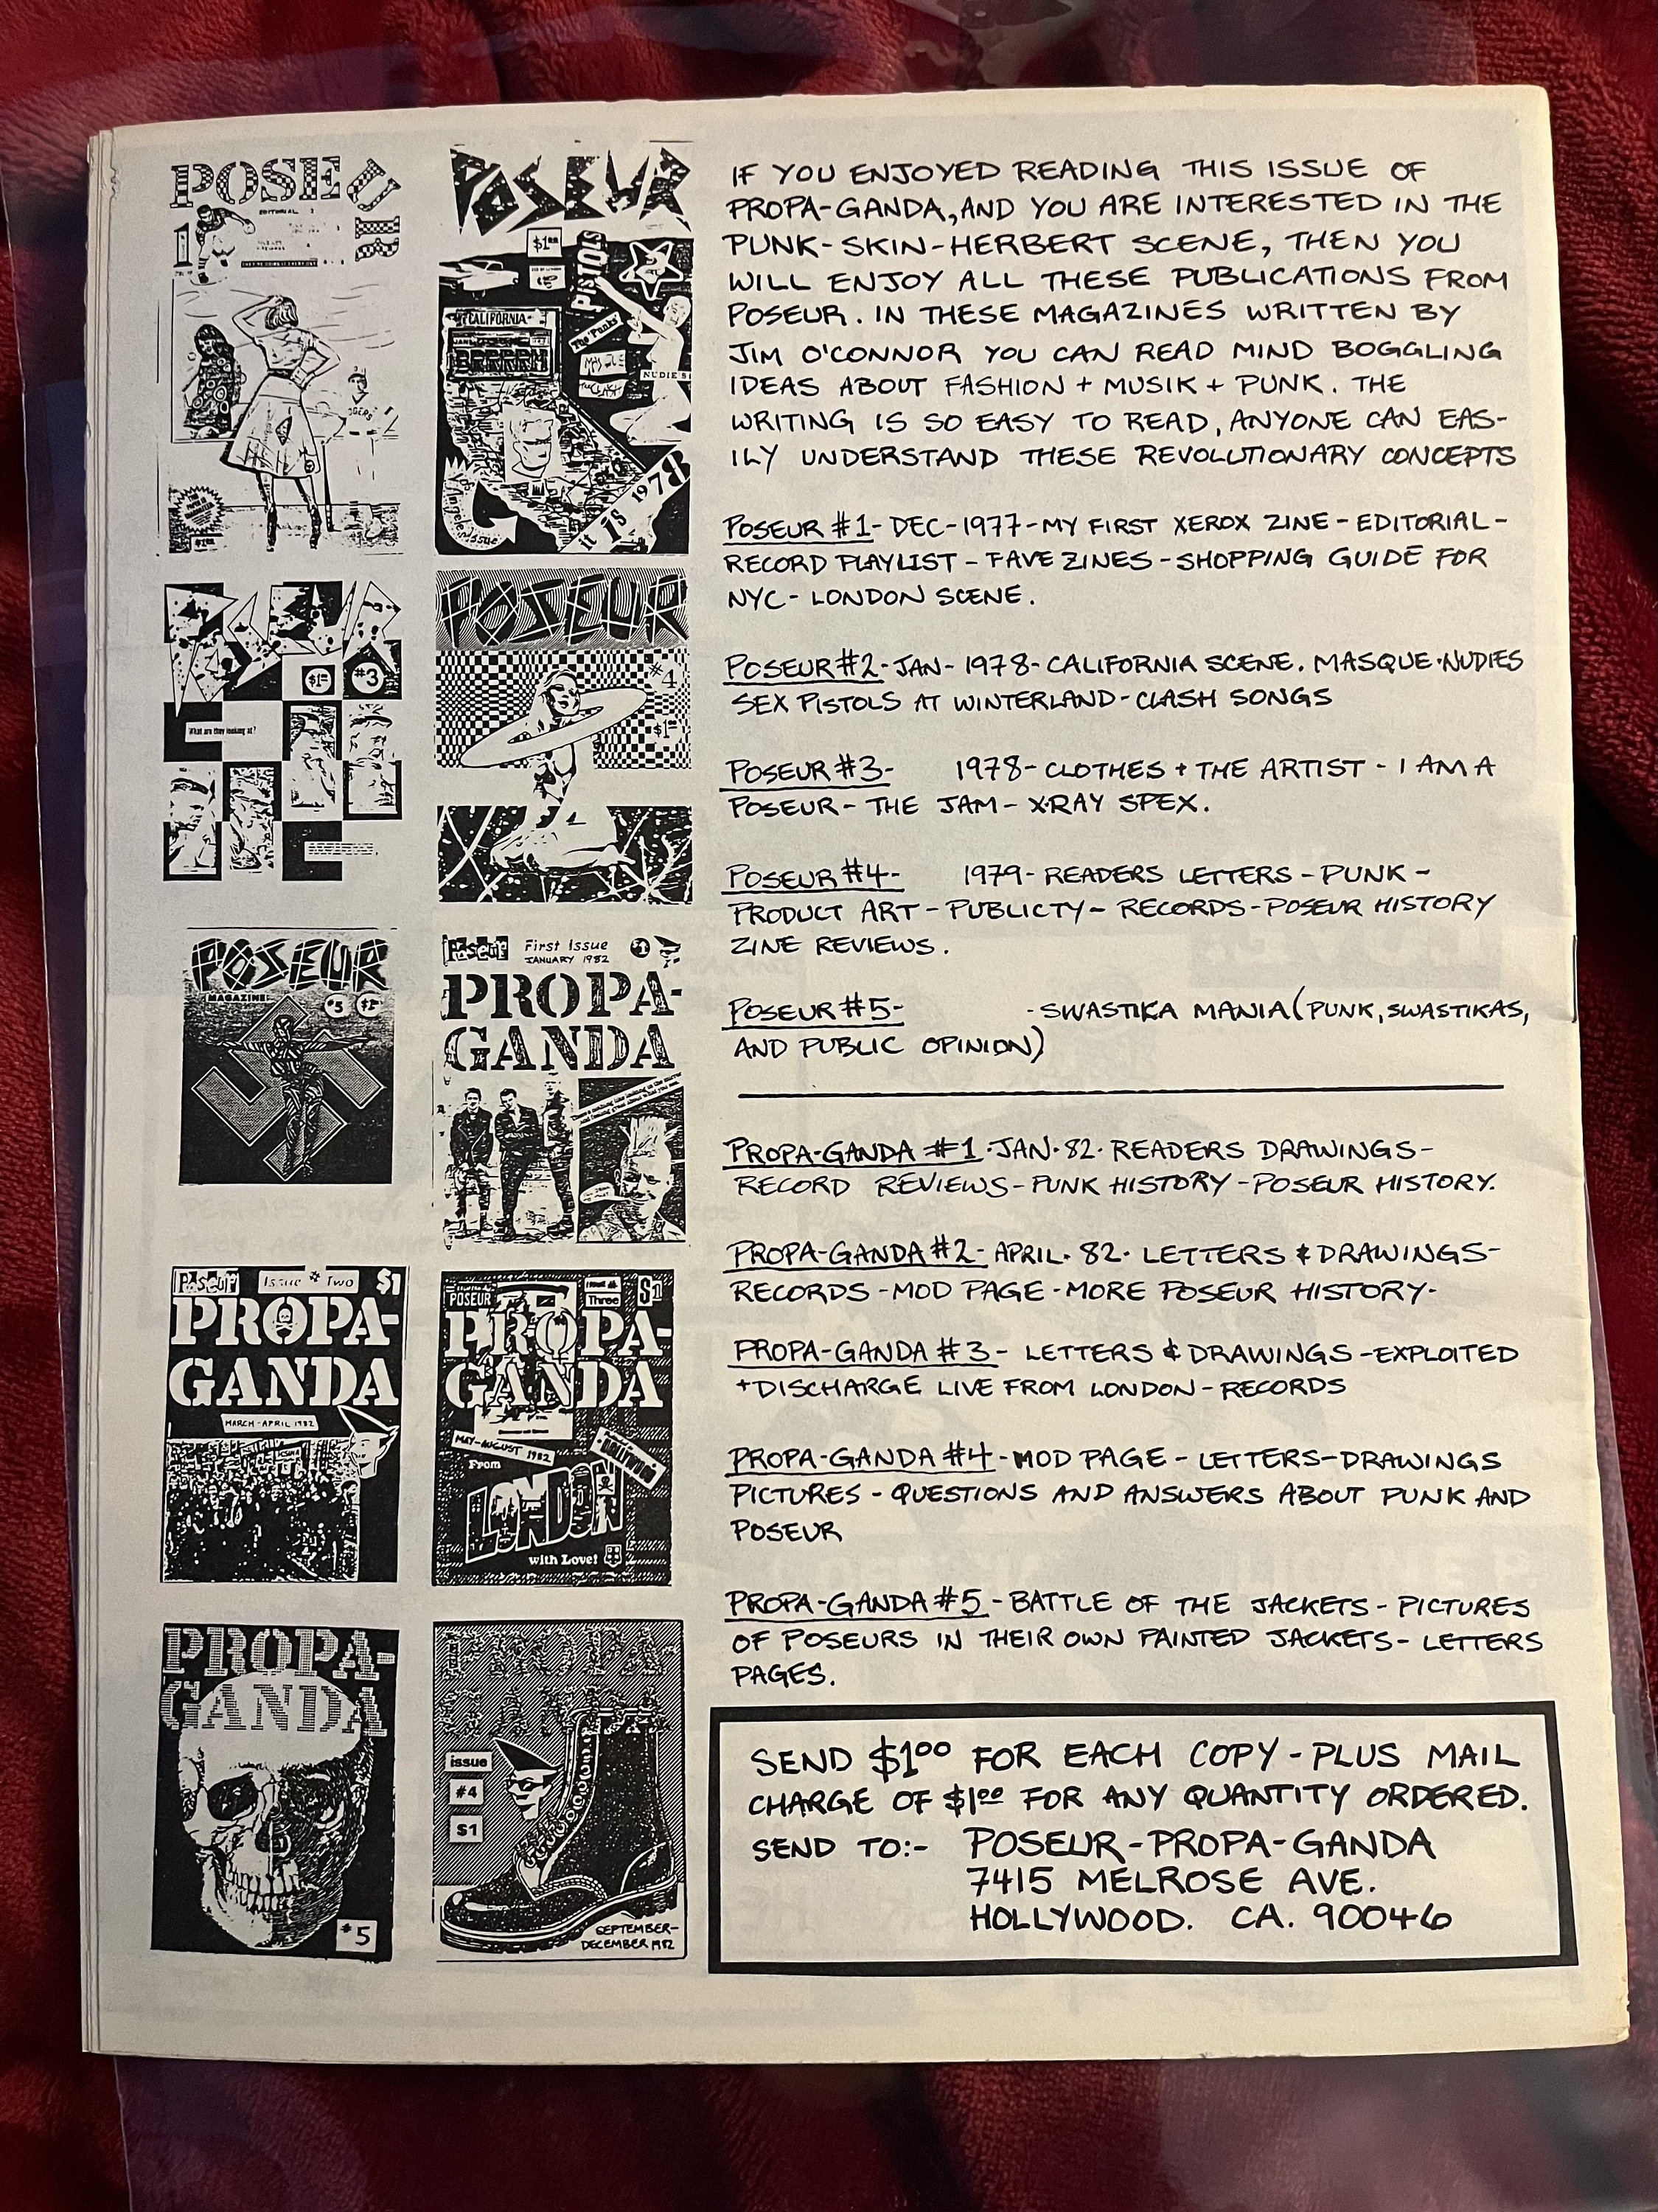 POSEUR
EDITORIAL
1
$1.00
POSEUR
$1.00
PISTOLS
CALIFORNIA
The 'Punks'
MASQUE
the CLASH
NUDIES
it is 1978
Los Angeles issue
$1.00
#3
What are they looking at?
POSEUR
#4
$1.00
POSEUR
MAGAZINE
#5
$1.00
Poseur First Issue
JANUARY 1982
$1
PROPA-
GANDA
Poseur Issue # Two $1
PROPA-
GANDA
MARCH-APRIL 1982
POSEUR
Three
$1
PROPA-
GANDA
MAY-AUGUST 1982
From
LONDON
with Love!
PROPA-
GANDA
#5
PROPA
GANDA
issue
#4
$1
SEPTEMBER-
DECEMBER 1982
IF YOU ENJOYED READING THIS ISSUE OF
PROPA-GANDA, AND YOU ARE INTERESTED IN THE
PUNK-SKIN-HERBERT SCENE, THEN YOU
WILL ENJOY ALL THESE PUBLICATIONS FROM
POSEUR. IN THESE MAGAZINES WRITTEN BY
JIM O'CONNOR YOU CAN READ MIND BOGGLING
IDEAS ABOUT FASHION + MUSIK + PUNK. THE
WRITING IS SO EASY TO READ, ANYONE CAN EAS-
ILY UNDERSTAND THESE REVOLUTIONARY CONCEPTS
POSEUR #1- DEC-1977-MY FIRST XEROX ZINE-EDITORIAL-
RECORD PLAYLIST-FAVE ZINES-SHOPPING GUIDE FOR
NYC-LONDON SCENE.
POSEUR #2-JAN-1978-CALIFORNIA SCENE. MASQUE·NUDIES
SEX PISTOLS AT WINTERLAND-CLASH SONGS
POSEUR #3- 1978-CLOTHES + THE ARTIST - I AM A
POSEUR-THE JAM-X·RAY SPEX.
POSEUR #4- 1979-READERS LETTERS-PUNK-
PRODUCT ART-PUBLICTY-RECORDS-POSEUR HISTORY
ZINE REVIEWS.
POSEUR #5- -SWASTIKA MANIA (PUNK, SWASTIKAS,
AND PUBLIC OPINION)
PROPA-GANDA #1·JAN·82·READERS DRAWINGS-
RECORD REVIEWS-PUNK HISTORY-POSEUR HISTORY.
PROPA-GANDA #2-APRIL·82·LETTERS & DRAWINGS-
RECORDS-MOD PAGE-MORE POSEUR HISTORY-
PROPA-GANDA #3- LETTERS & DRAWINGS-EXPLOITED
+DISCHARGE LIVE FROM LONDON-RECORDS
PROPA-GANDA #4-MOD PAGE-LETTERS-DRAWINGS
PICTURES-QUESTIONS AND ANSWERS ABOUT PUNK AND
POSEUR
PROPA-GANDA #5-BATTLE OF THE JACKETS-PICTURES
OF POSEURS IN THEIR OWN PAINTED JACKETS-LETTERS
PAGES.
SEND $1.00 FOR EACH COPY-PLUS MAIL
CHARGE OF $1.00 FOR ANY QUANTITY ORDERED.
SEND TO:- POSEUR-PROPA-GANDA
7415 MELROSE AVE.
HOLLYWOOD. CA. 90046